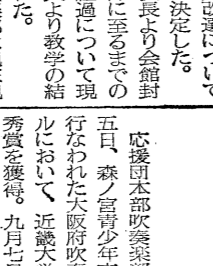 改選について
決定した。
長より会館封
に至るまでの
過について現
より教学の結
た。
応援団本部吹奏楽部
五日、森ノ宮青少年
行なわれた大阪府吹
ルにおいて、近畿大学
秀賞を獲得。九月七